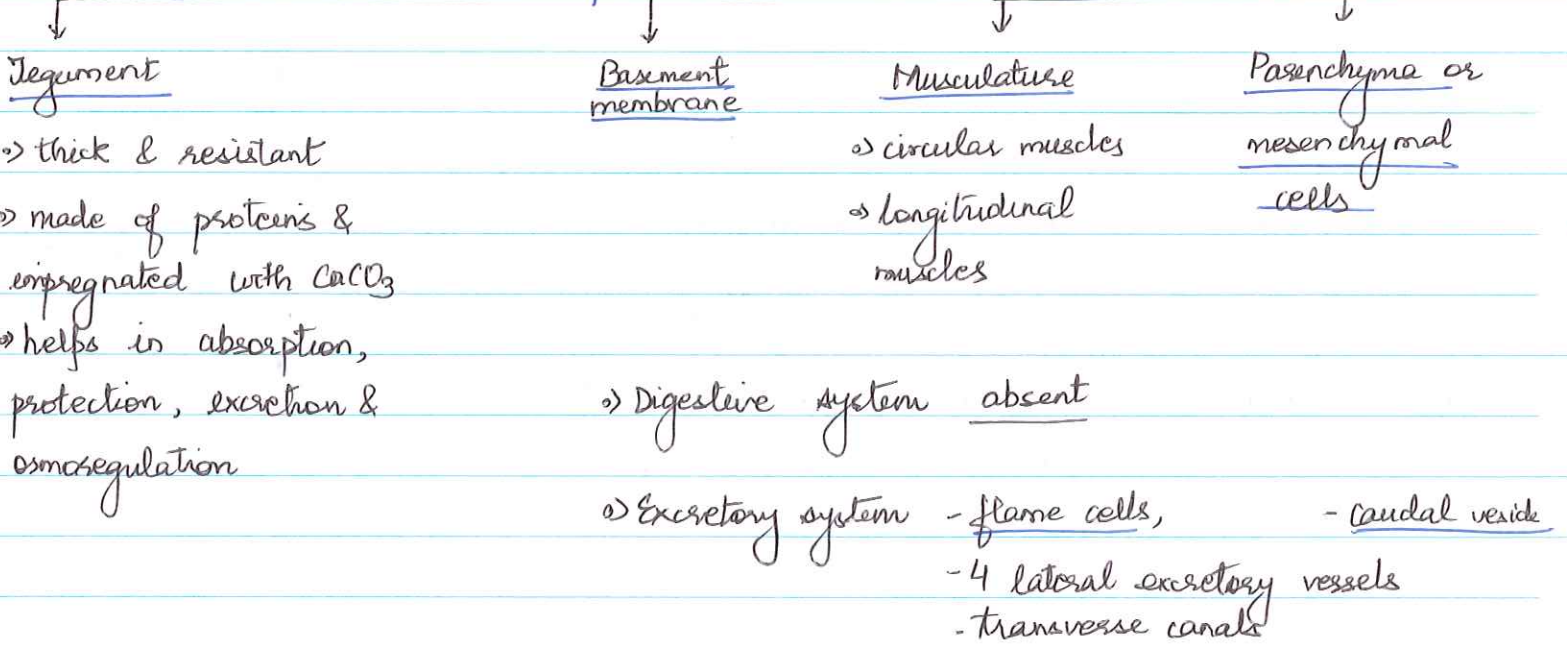 Tegument
thick & resistant
made of proteins &
impregnated with CaCO3
helps in absorption,
protection, excretion &
osmoregulation
Basement
membrane
Musculature
circular muscles
longitudinal
muscles
Parenchyma or
mesenchymal
cells
Digestive system absent
Excretory system - flame cells, - caudal vesicle
- 4 lateral excretory vessels
- transverse canals